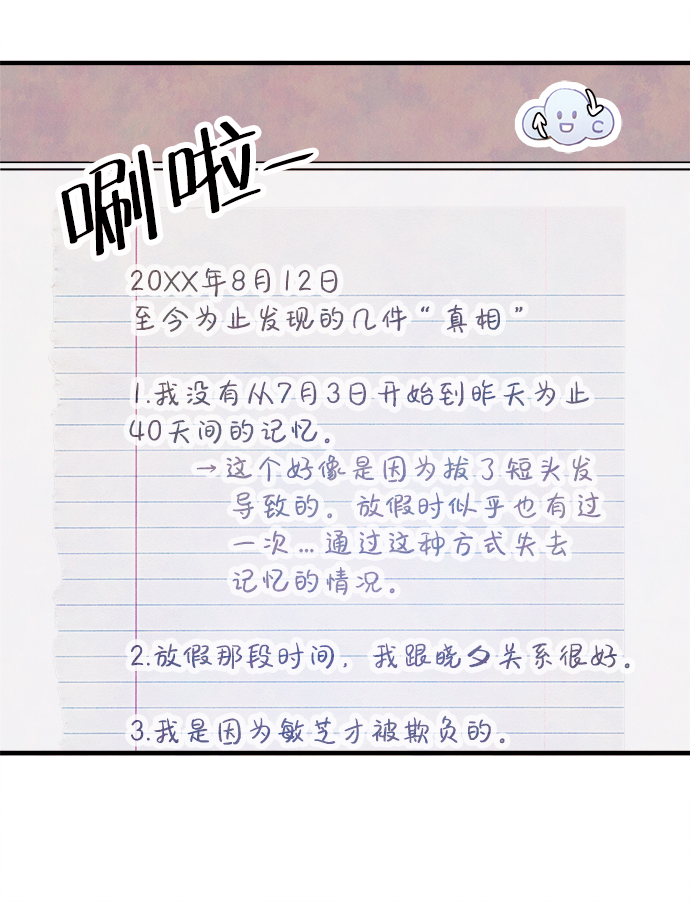 唰啦—
C
20XX年8月12日
至今为止发现的几件“真相”
1.我没有从7月3日开始到昨天为止
40天间的记忆。
→这个好像是因为拔了短头发
导致的。放假时似乎也有过
一次...通过这种方式失去
记忆的情况。
2.放假那段时间，我跟晓夕关系很好。
3.我是因为敏芝才被欺负的。